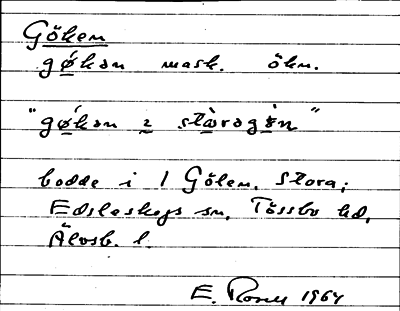 Göken
gø̀kan mask. ökn.
"gø̀kan i stɑ̀ragøn"
bodde i 1 Gölen, Stora;
Edsleskogs sn, Tössbo hd,
Älvsb. l.
E. 1964